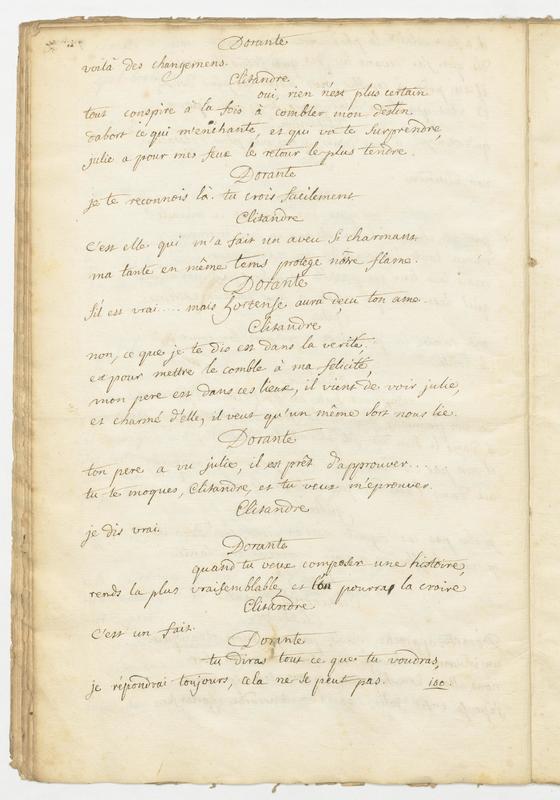 Dorante
voilà des changemens.
Clitandre
oui, rien n'est plus certain
tout conspire à la fois à combler mon destin
d'abort ce qui m'enchante, et qui va te surprendre,
julie a pour mes feux le retour le plus tendre.
Dorante
je te reconnois là. tu crois facilement
Clitandre
C'est elle qui m'a fait un aveu si charmant
ma tante en même tems protege nôtre flame.
Dorante
S'il est vrai.... mais hortense aura deçu ton ame.
Clitandre
non, ce que je te dis est dans la verité,
et pour mettre le comble à ma felicité,
mon pere est dans ces lieux, il vient de voir julie,
et charmé d'elle, il veut qu'un même sort nous lie.
Dorante
ton pere a vu julie, il est prêt d'approuver...
tu te moques, Clitandre, et tu veux m'éprouver.
Clitandre
je dis vrai.
Dorante
quand tu veux composer une histoire,
rends la plus vraisemblable, et l'on pourra la croire
Clitandre
C'est un fait.
Dorante
tu diras tout ce que tu voudras,
je répondrai toujours, cela ne se peut pas. 180.